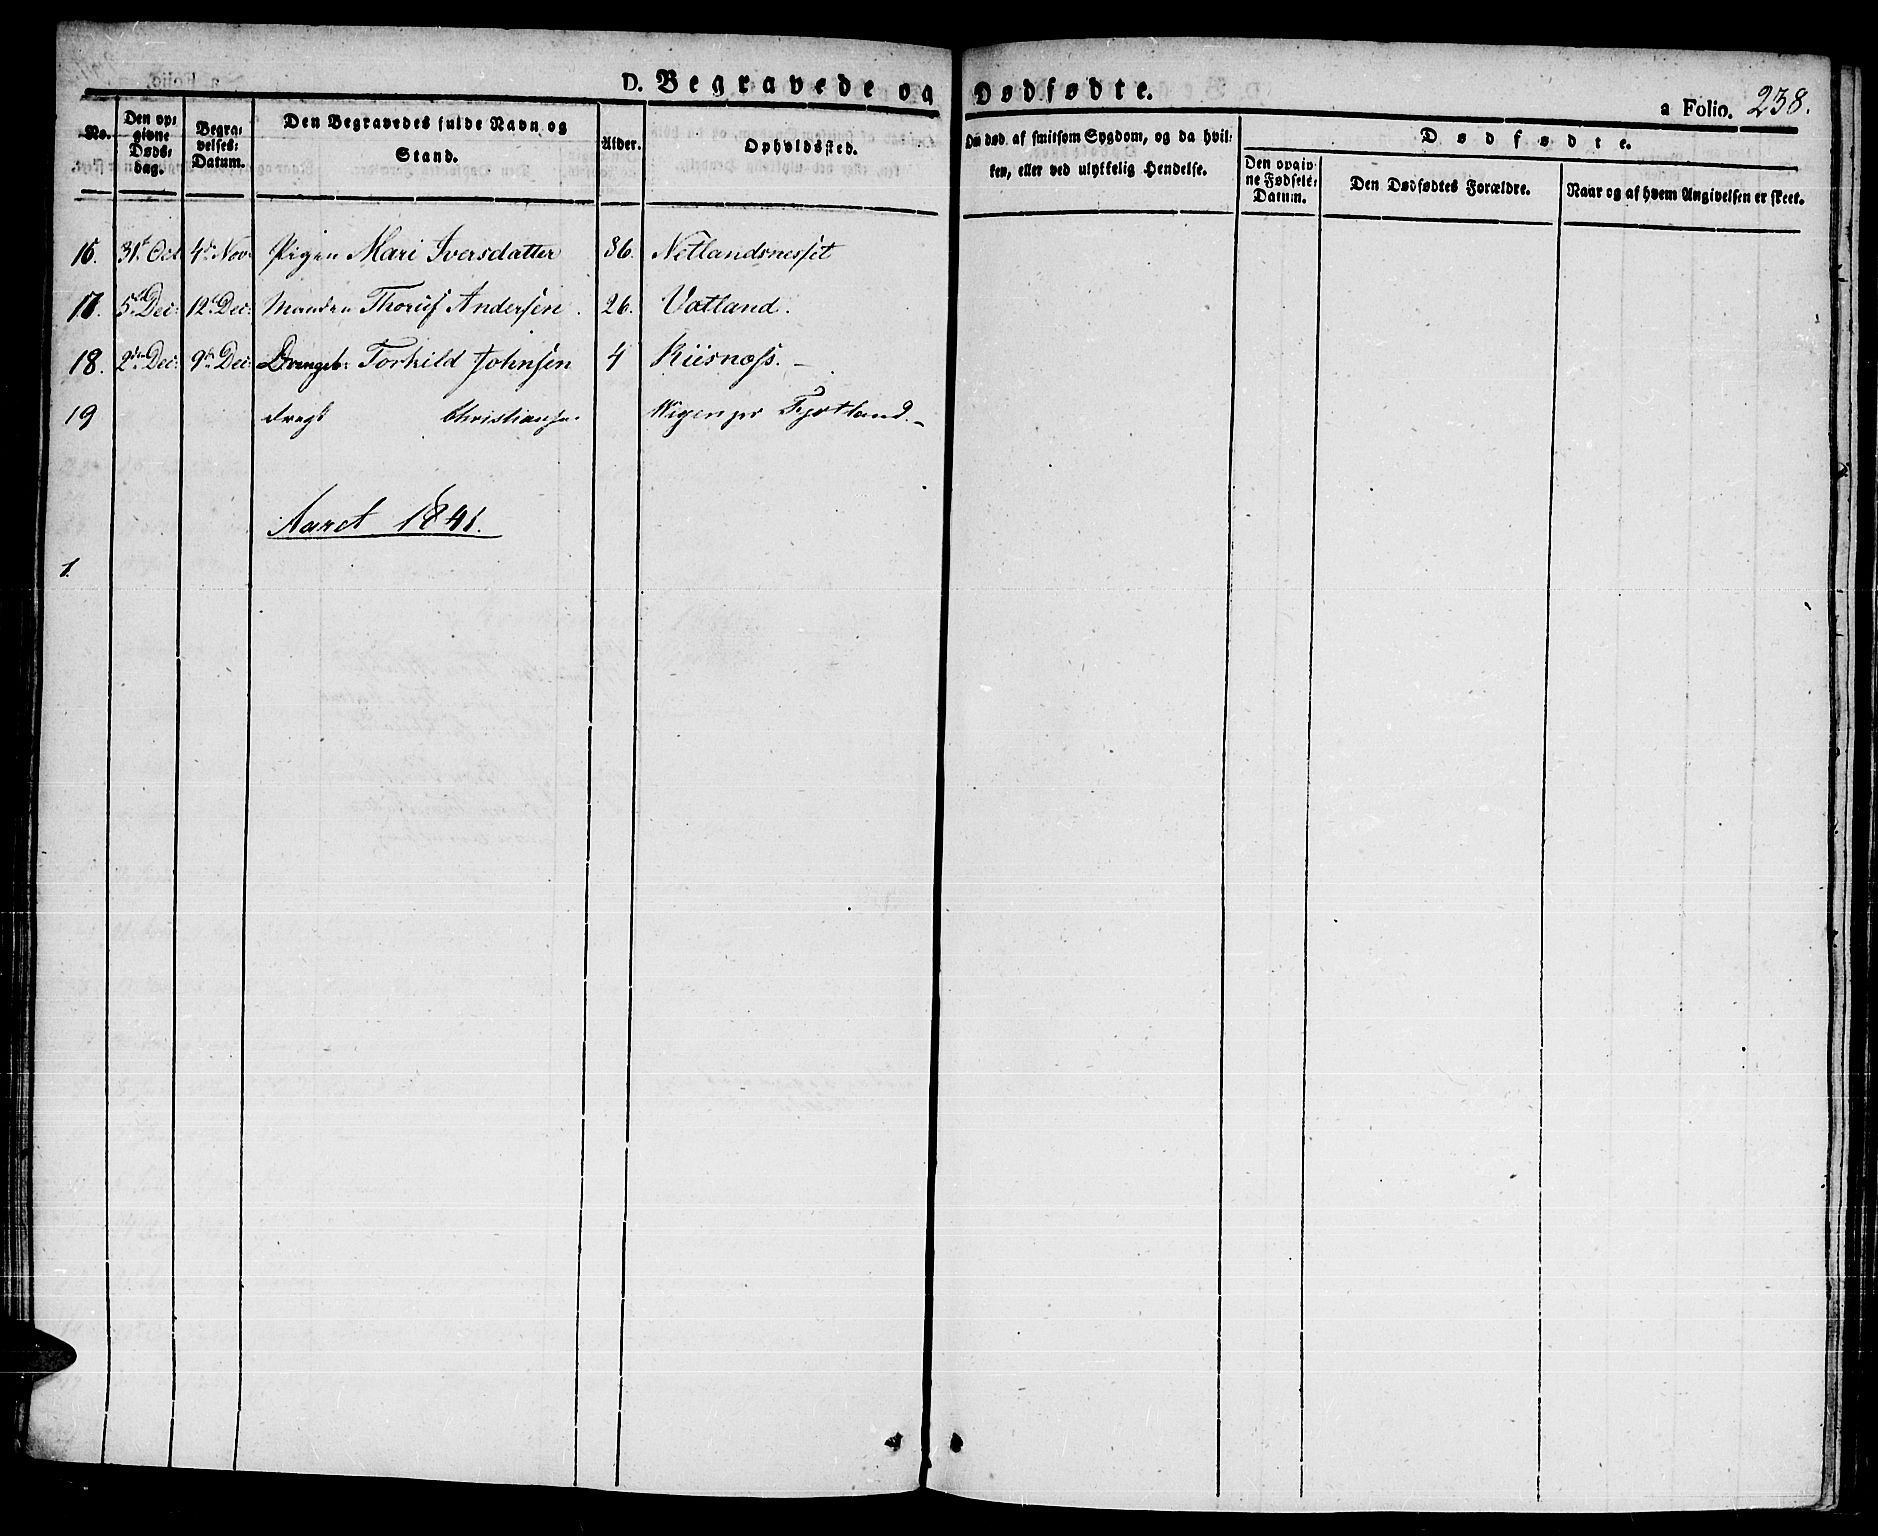 D. Begravede og Dødfødte.
a Folio. 238.
No.
Den op-givne Døds-dag.
Begra-velses-Datum.
Den Begravedes fulde Navn og Stand.
Alder.
Opholdssted.
Om død af smitsom Sygdom, og da hvil-
ken, eller ved ulykkelig Hendelse.
Dødfødte.
Den opgiv-ne Fødsels-Datum.
Den Dødfødtes Forældre.
Naar og af hvem Angivelsen er skeet.
16. 31t Oct 4d Nov Pigen Mari Iversdatter 36. Netlandsnesset
17. 5t Dec: 12t Dec: Manden Andersen. 26. Vatland.
18. 2d Dec: 9d Dec: Drengeb: Torkild Johnsen 4 Riisness.
19 Christiansen Fjotland.
Aaret 1841.
1.